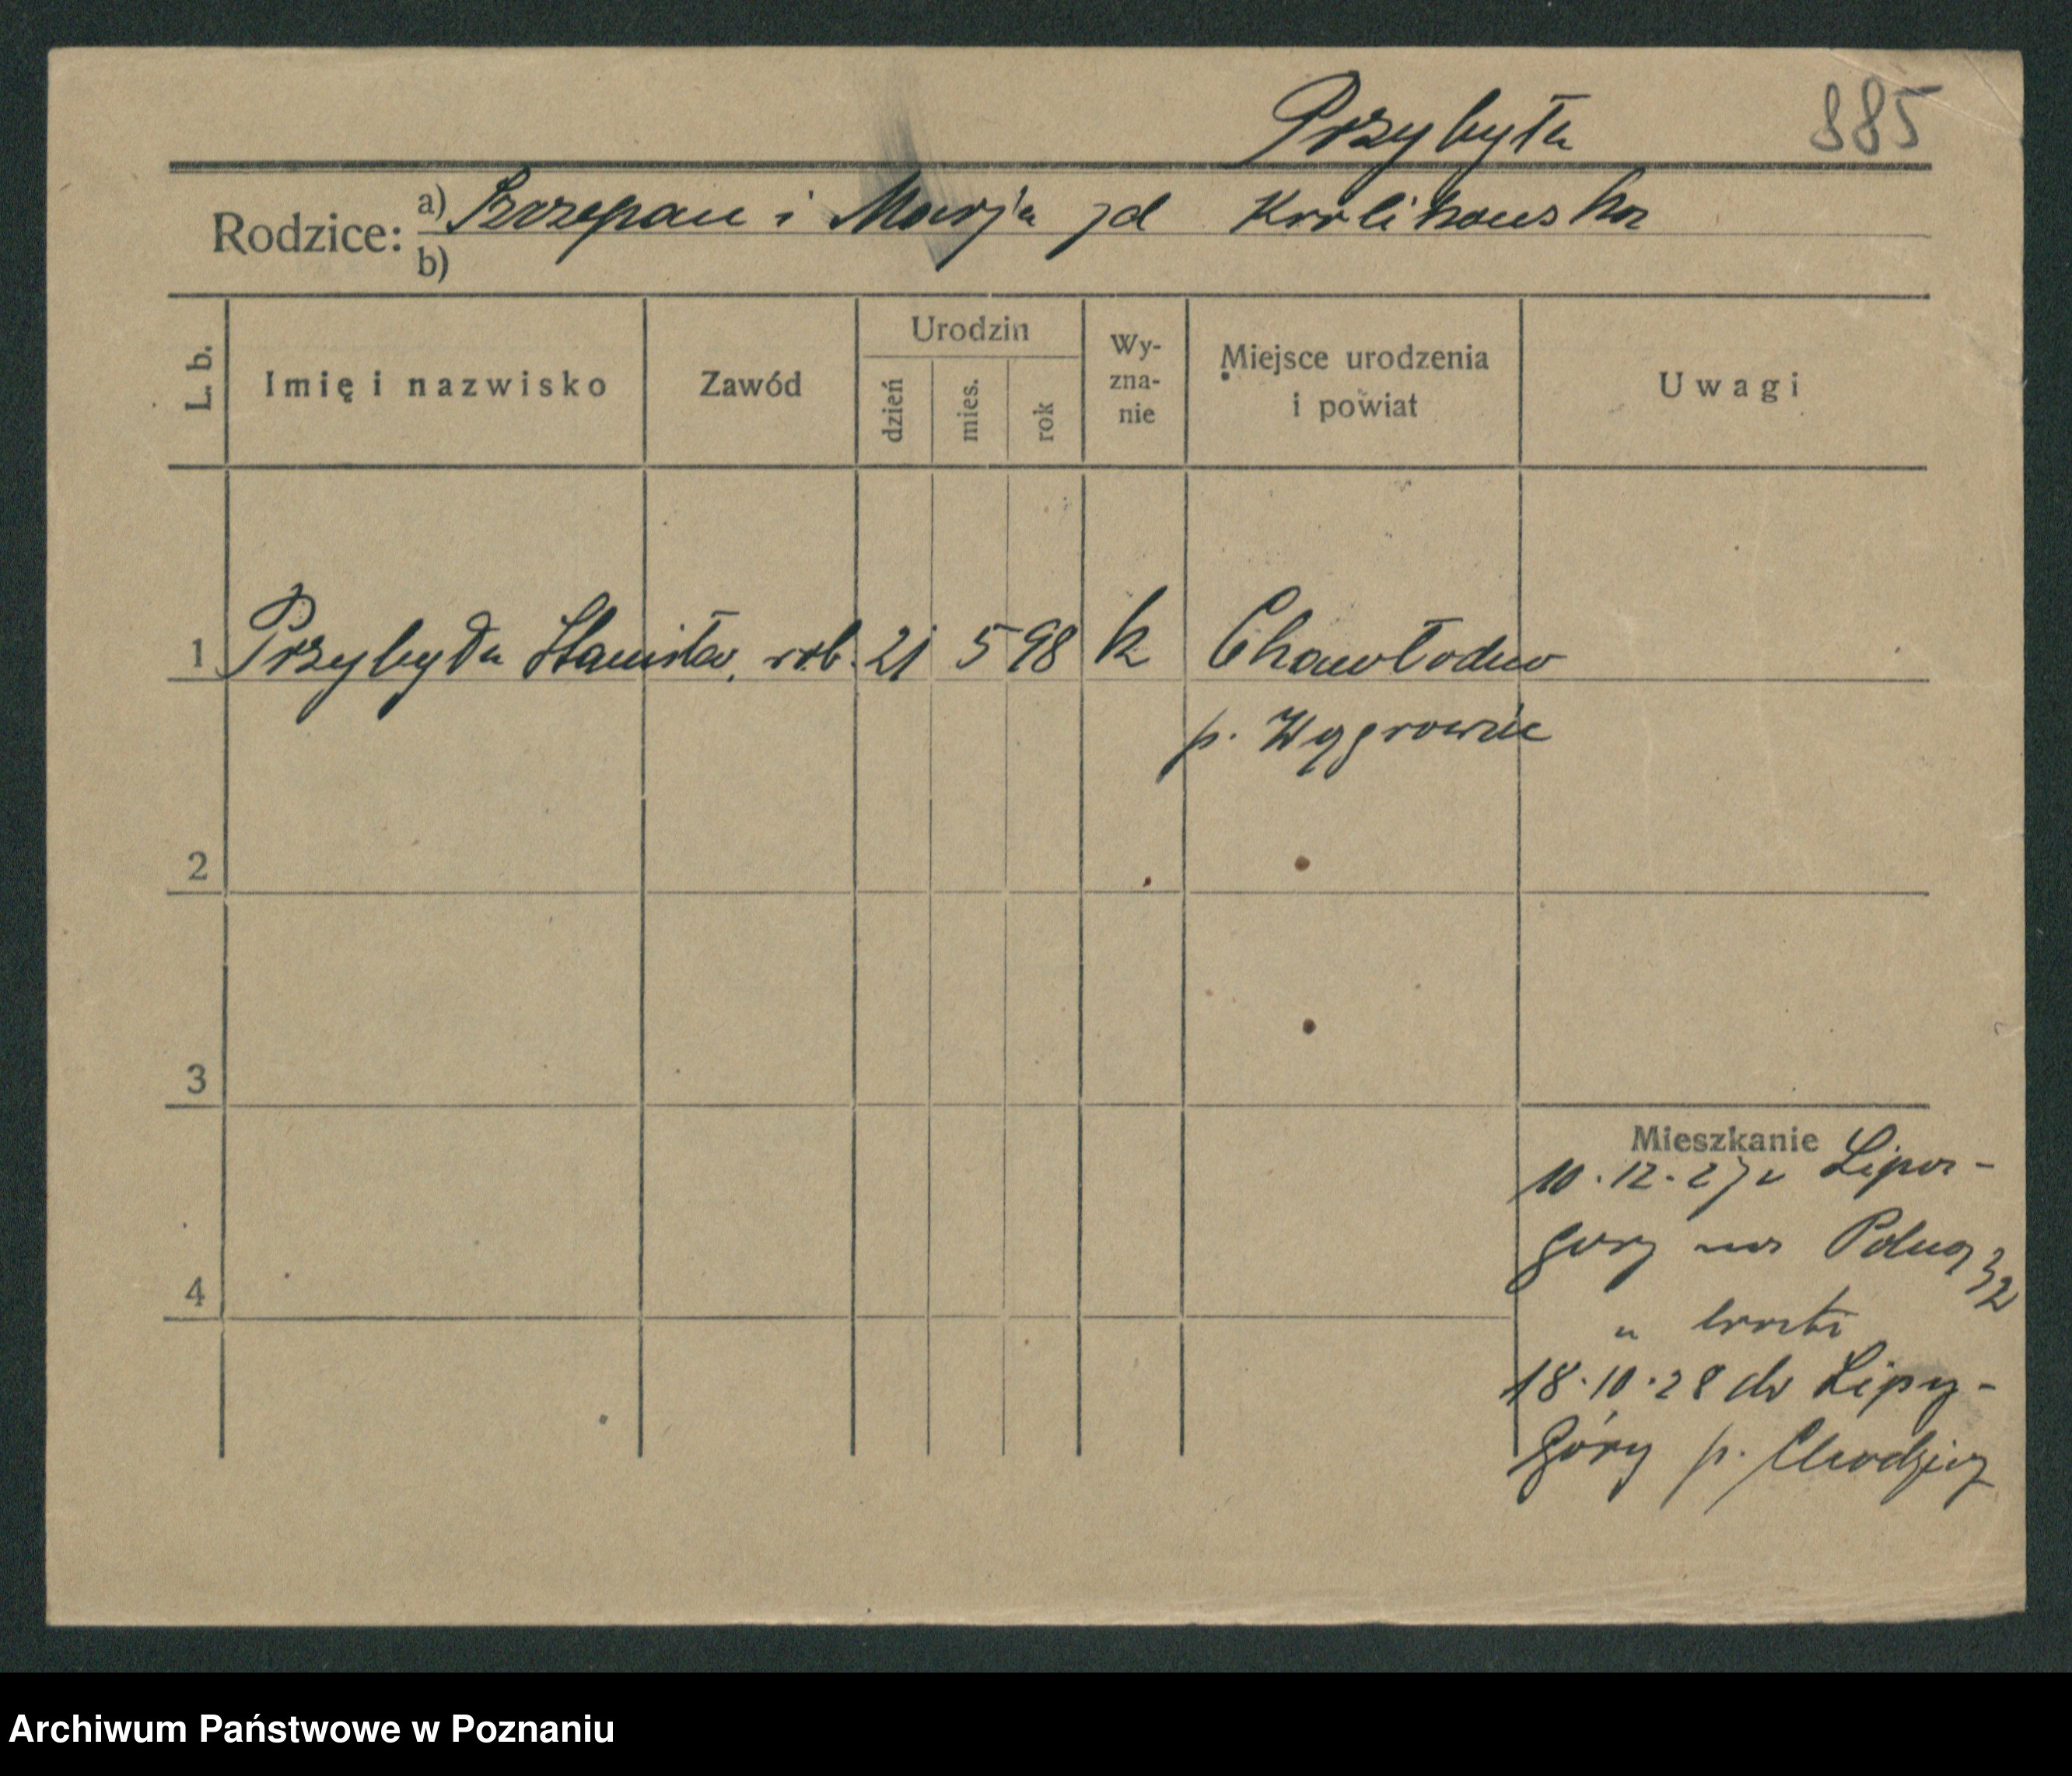 Przybyła 885
Rodzice: a) Szczepan i Marja zd Krolikowska
b)
L. b. Imię i nazwisko Zawód Urodzin dzień mies. rok Wy-zna-nie Miejsce urodzenia i powiat Uwagi
1 Przybyła Stanisław, rob. 21 5 98 k
p. Wągrowiec
2
3
Mieszkanie
10.12.27 z Lipa-
gory na Polną 32
4
18.10.28 do Lipy-
Góry p. Chodzież
Archiwum Państwowe w Poznaniu